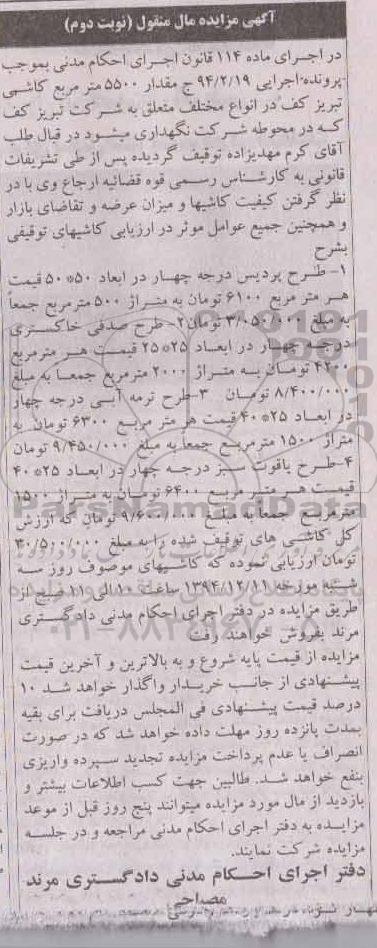 آگهی مزایده مال منقول (نوبت دوم)
در اجرای ماده ۱۱۴ قانون اجرای احکام مدنی بموجب
پرونده اجرایی ۹۴/۲/۱۹ ج مقدار ۵۵۰۰ متر مربع کاشی
تبریز کف در انواع مختلف متعلق به شرکت تبریز کف
که در محوطه شرکت نگهداری میشود در قبال طلب
آقای کرم مهدیزاده توقیف گردیده پس از طی تشریفات
قانونی به کارشناس رسمی قوه قضائیه ارجاع وی با در
نظر گرفتن کیفیت کاشیها و میزان عرضه و تقاضای بازار
و همچنین جمیع عوامل موثر در ارزیابی کاشیهای توقیفی
بشرح
۱- طرح پردیس درجه چهار در ابعاد ۵۰*۵۰ قیمت
هر متر مربع ۶۱۰۰ تومان به متراژ ۵۰۰ مترمربع جمعاً
به مبلغ ۳/۰۵۰/۰۰۰ تومان ۲- طرح صدفی خاکستری
درجه چهار در ابعاد ۲۵*۲۵ قیمت هر مترمربع
۴۲۰۰ تومان به متراژ ۲۰۰۰ مترمربع جمعا به مبلغ
۸/۴۰۰/۰۰۰ تومان ۳-طرح ترمه آبی درجه چهار
در ابعاد ۲۵*۴۰ قیمت هر متر مربع ۶۳۰۰ تومان به
متراژ ۱۵۰۰ مترمربع جمعاً به مبلغ ۹/۴۵۰/۰۰۰ تومان
۴-طرح یاقوت سبز درجه چهار در ابعاد ۲۵*۴۰
قیمت هر متر مربع ۶۴۰۰ تومان به متراژ ۱۵۰۰
مترمربع جمعاً به مبلغ ۹/۶۰۰/۰۰۰ تومان که ارزش
کل کاشی های توقیف شده را به مبلغ ۳۰/۵۰۰/۰۰۰
تومان ارزیابی نموده که کاشیهای موصوف روز سه
شنبه مورخه ۱۳۹۴/۱۲/۱۱ ساعت ۱۰ الی ۱۱ صبح از
طریق مزایده در دفتر اجرای احکام مدنی دادگستری
مرند بفروش خواهند رفت
مزایده از قیمت پایه شروع و به بالاترین و آخرین قیمت
پیشنهادی از جانب خریدار واگذار خواهد شد ۱۰
درصد قیمت پیشنهادی فی المجلس دریافت برای بقیه
بمدت پانزده روز مهلت داده خواهد شد که در صورت
انصراف یا عدم پرداخت مزایده تجدید سپرده واریزی
بنفع خواهد شد. طالبین جهت کسب اطلاعات بیشتر و
بازدید از مال مورد مزایده میتوانند پنج روز قبل از موعد
مزایده به دفتر اجرای احکام مدنی مراجعه و در جلسه
مزایده شرکت نمایند.
دفتر اجرای احکام مدنی دادگستری مرند
مصباحی
ParsNamadData
۰۲۱-۸۸۳۴۹۶۷۰-۵